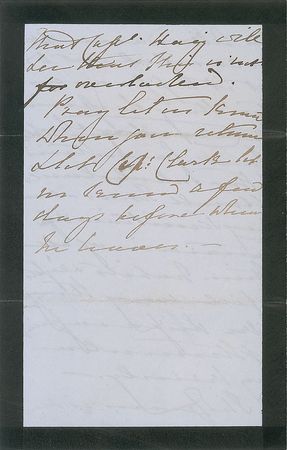 that Capt. Haig will
see that this is not
for overlooked.
Pray let us know
when you return
& let Capt: Clark let
us know a few
days before when
he leaves. —